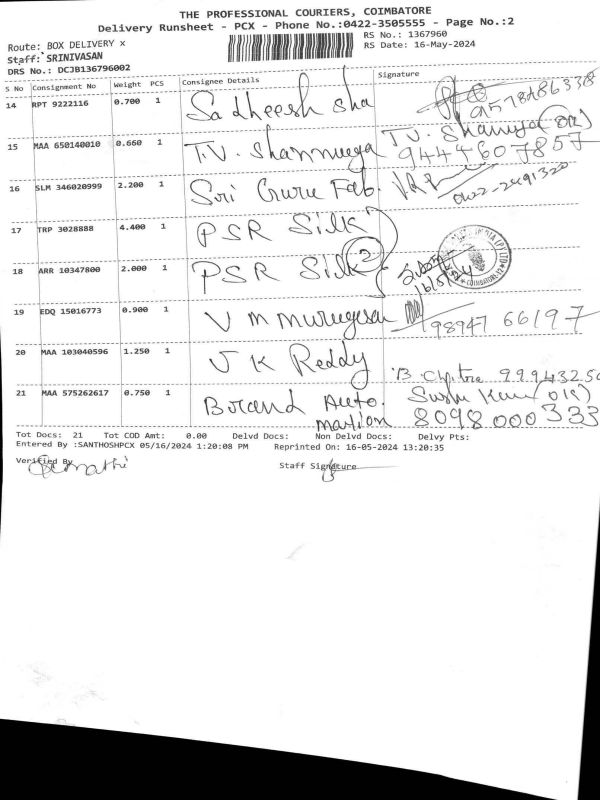 THE PROFESSIONAL COURIERS, COIMBATORE
Delivery Runsheet - PCX - Phone No.:0422-3505555 - Page No.:2
Route: BOX DELIVERY x
RS No.: 1367960
Staff: SRINIVASAN
RS Date: 16-May-2024
DRS No.: DCJB136796002
S No Consignment No Weight PCS Consignee Details Signature
14 RPT 9222116 0.700 1 Sadheesh sha
15 MAA 650140010 0.660 1 T.V. Shanmuga T.V. Shaniya
9444607857
16 SLM 346020999 2.200 1 Sri Guru Fab. 0422-2491320
17 TRP 3028888 4.400 1 PSR Silk
18 ARR 10347800 2.000 1 PSR Silk 2
16/5/24
19 EDQ 15016773 0.900 1 V M Murugesan 98947 66197
20 MAA 103040596 1.250 1 J K Reddy
21 MAA 575262617 0.750 1 Brand Auto. mation
8098000333
Tot Docs: 21 Tot COD Amt: 0.00 Delvd Docs: Non Delvd Docs: Delvy Pts:
Entered By :SANTHOSHPCX 05/16/2024 1:20:08 PM Reprinted On: 16-05-2024 13:20:35
Verified By
Staff Signature